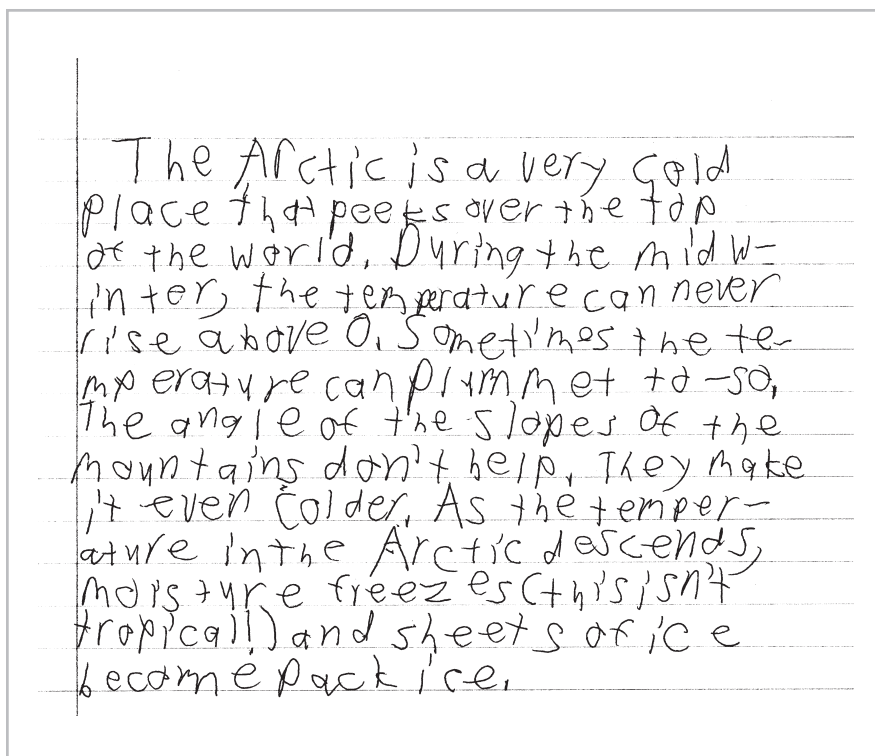 The Arctic is a very cold
place that peeks over the top
of the world. During the midw-
inter, the temperature can never
rise above 0. Sometimes the te-
mperature can plummet to -50.
The angle of the slopes of the
mountains don't help. They make
it even colder. As the temper-
ature in the Arctic descends,
moisture freezes (this isn't
tropical!) and sheets of ice
become pack ice.